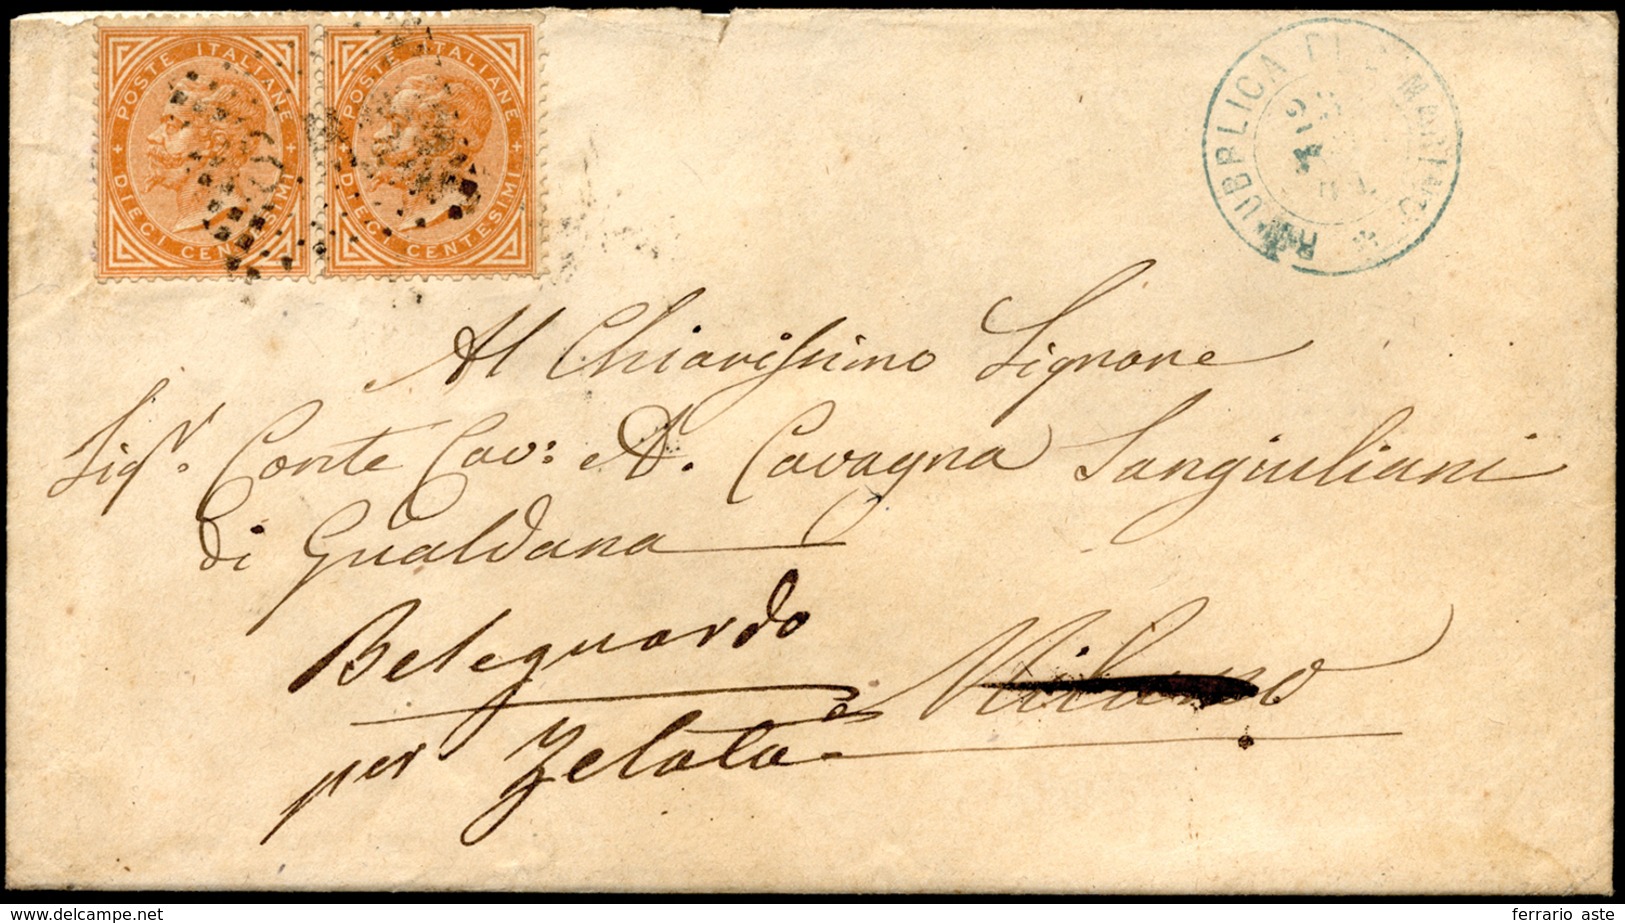 POSTE ITALIANE
DIECI CENTESIMI
POSTE ITALIANE
DIECI CENTESIMI
REPUBLICA DI S. MARINO
Al Chiarissimo Signore
Sigr. Conte Cav: A. Cavagna Sangiuliani
di Gualdana
Milano
Beleguardo
per Zelata
www.delcampe.net
ferrario aste